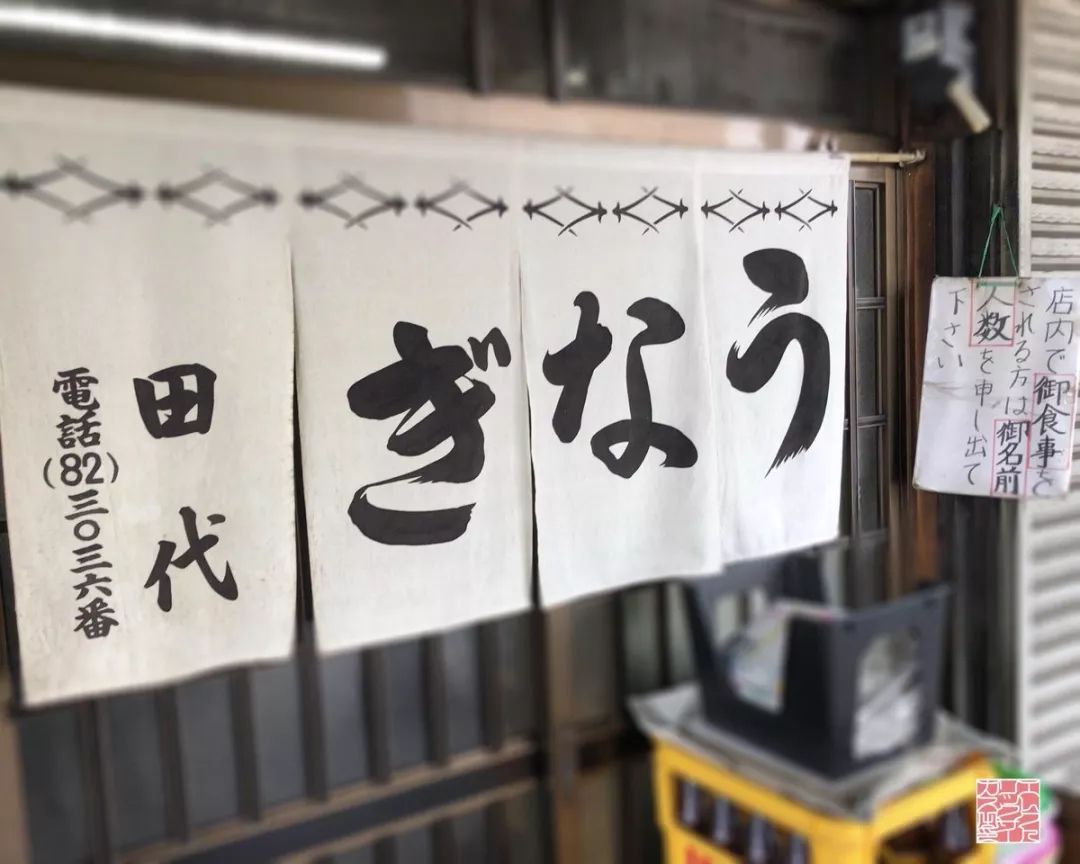 うなぎ
田代
電話(82)三〇三六番
店内で御食事を
される方は御名前
人数を申し出て
下さい